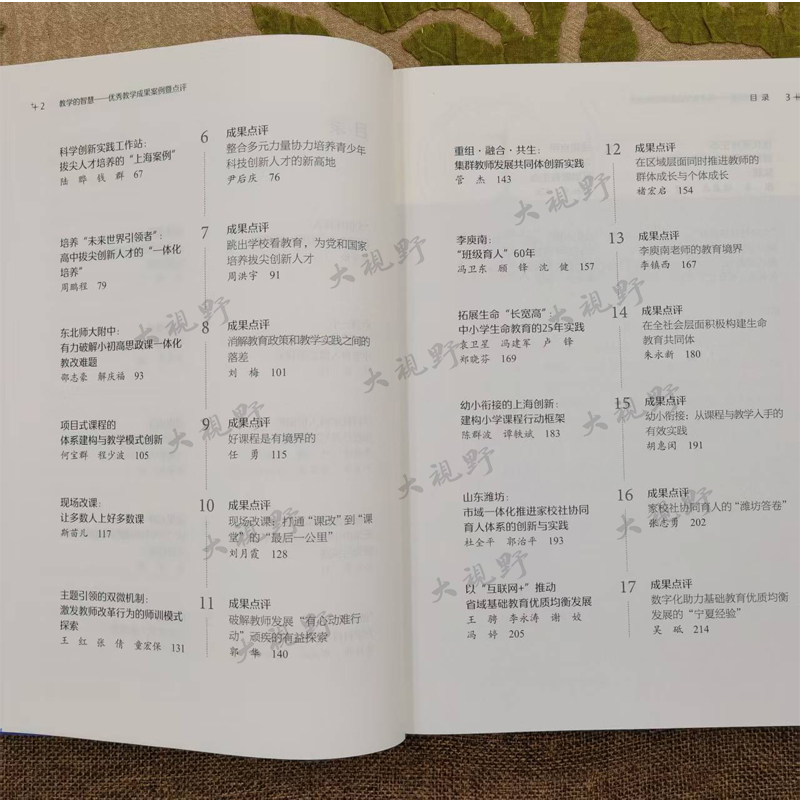 2 教学的智慧——优秀教学成果案例暨点评
科学创新实践工作站：
拔尖人才培养的“上海案例”
陆 晔 钱 群 67
6
成果点评
整合多元力量协力培养青少年
科技创新人才的新高地
尹后庆 76
培养“未来世界引领者”：
高中拔尖创新人才的“一体化
培养”
周鹏程 79
7
成果点评
跳出学校看教育，为党和国家
培养拔尖创新人才
周洪宇 91
东北师大附中：
有力破解小初高思政课一体化
教改难题
邵志豪 解庆福 93
8
成果点评
消解教育政策和教学实践之间的
落差
刘 梅 101
项目式课程的
体系建构与教学模式创新
何宝群 程少波 105
9
成果点评
好课程是有境界的
任 勇 115
现场改课：
让多数人上好多数课
斯苗儿 117
10
成果点评
现场改课：打通“课改”到“课
堂”的“最后一公里”
刘月霞 128
主题引领的双微机制：
激发教师改革行为的师训模式
探索
王 红 张 倩 童宏保 131
11
成果点评
破解教师发展“有心动难行
动”顽疾的有益探索
郭 华 140
目 录 3
重组·融合·共生：
集群教师发展共同体创新实践
管 杰 143
12
成果点评
在区域层面同时推进教师的
群体成长与个体成长
褚宏启 154
李庾南：
“班级育人”60年
冯卫东 顾 锋 沈 健 157
13
成果点评
李庾南老师的教育境界
李镇西 167
拓展生命“长宽高”：
中小学生命教育的25年实践
袁卫星 冯建军 卢 锋
郑晓芬 169
14
成果点评
在全社会层面积极构建生命
教育共同体
朱永新 180
幼小衔接的上海创新：
建构小学课程行动框架
陈群波 谭轶斌 183
15
成果点评
幼小衔接：从课程与教学入手的
有效实践
胡惠闵 191
山东潍坊：
市域一体化推进家校社协同
育人体系的创新与实践
杜全平 郭治平 193
16
成果点评
家校社协同育人的“潍坊答卷”
张志勇 202
以“互联网+”推动
省域基础教育优质均衡发展
王 骋 李永涛 谢 姣
冯 婷 205
17
成果点评
数字化助力基础教育优质均衡
发展的“宁夏经验”
吴 砥 214
大视野
大视野
大视野
大视野
大视野
大视野
大视野
大视野
大视野
大视野
大视野
大视野